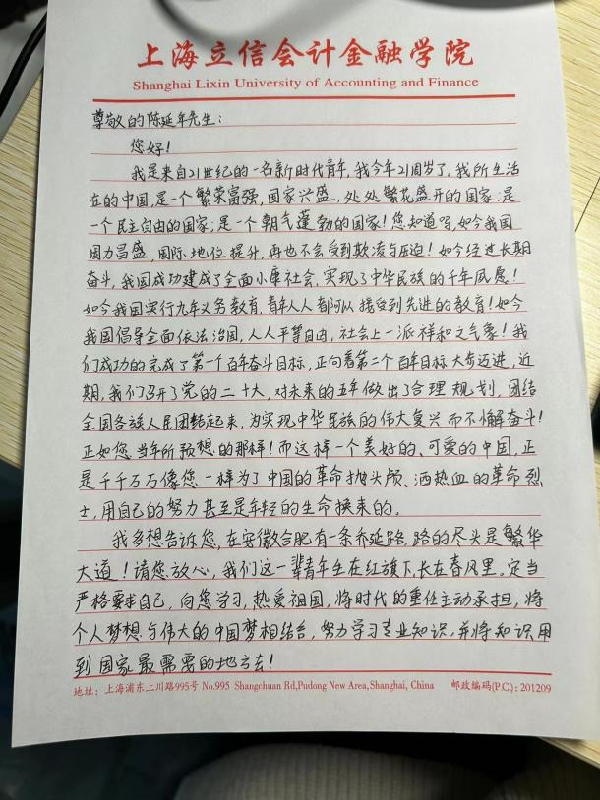 上海立信会计金融学院
Shanghai Lixin University of Accounting and Finance
尊敬的陈延年先生：
您好！
我是来自21世纪的一名新时代青年，我今年21周岁了，我所生活
在的中国，是一个繁荣富强，国家兴盛，处处繁花盛开的国家；是
一个民主自由的国家；是一个朝气蓬勃的国家！您知道吗，如今我国
国力昌盛，国际地位提升，再也不会受到欺凌与压迫！如今经过长期
奋斗，我国成功建成了全面小康社会，实现了中华民族的千年夙愿！
如今我国实行九年义务教育，青年人人都可以接受到先进的教育！如今
我国倡导全面依法治国，人人平等自由，社会上一派祥和之气象！我
们成功的完成了第一个百年奋斗目标，正向着第二个百年目标大步迈进，近
期，我们召开了党的二十大，对未来的五年做出了合理规划，团结
全国各族人民团结起来，为实现中华民族的伟大复兴而不懈奋斗！
正如您当年所预想的那样！而这样一个美好的、可爱的中国，正
是千千万万像您一样为了中国的革命抛头颅、洒热血的革命烈
士，用自己的努力甚至是年轻的生命换来的。
我多想告诉您，在安徽合肥有一条乔延路，路的尽头是繁华
大道！请您放心，我们这一辈青年生在红旗下，长在春风里。定当
严格要求自己，向您学习，热爱祖国，将时代的重任主动承担，将
个人梦想与伟大的中国梦相结合，努力学习专业知识，并将知识用
到国家最需要的地方去！
地址：上海浦东二川路995号 No.995 Shangchuan Rd,Pudong New Area,Shanghai, China 邮政编码(P.C)：201209